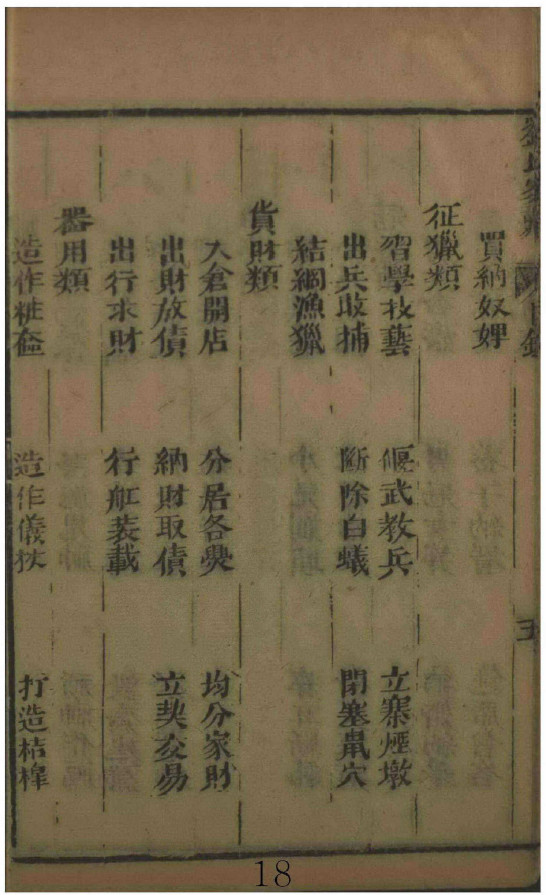 買納奴婢
征獵類
習學技藝 偃武教兵 立寨煙墩
出兵收捕 斷除白蟻 閉塞鼠穴
結網漁獵
貨財類
入倉開店 分居各爨 均分家財
出財放債 納財取債 立契交易
出行求財 行舡裝載
器用類
造作粧奩 造作儀仗 打造桔橰
18